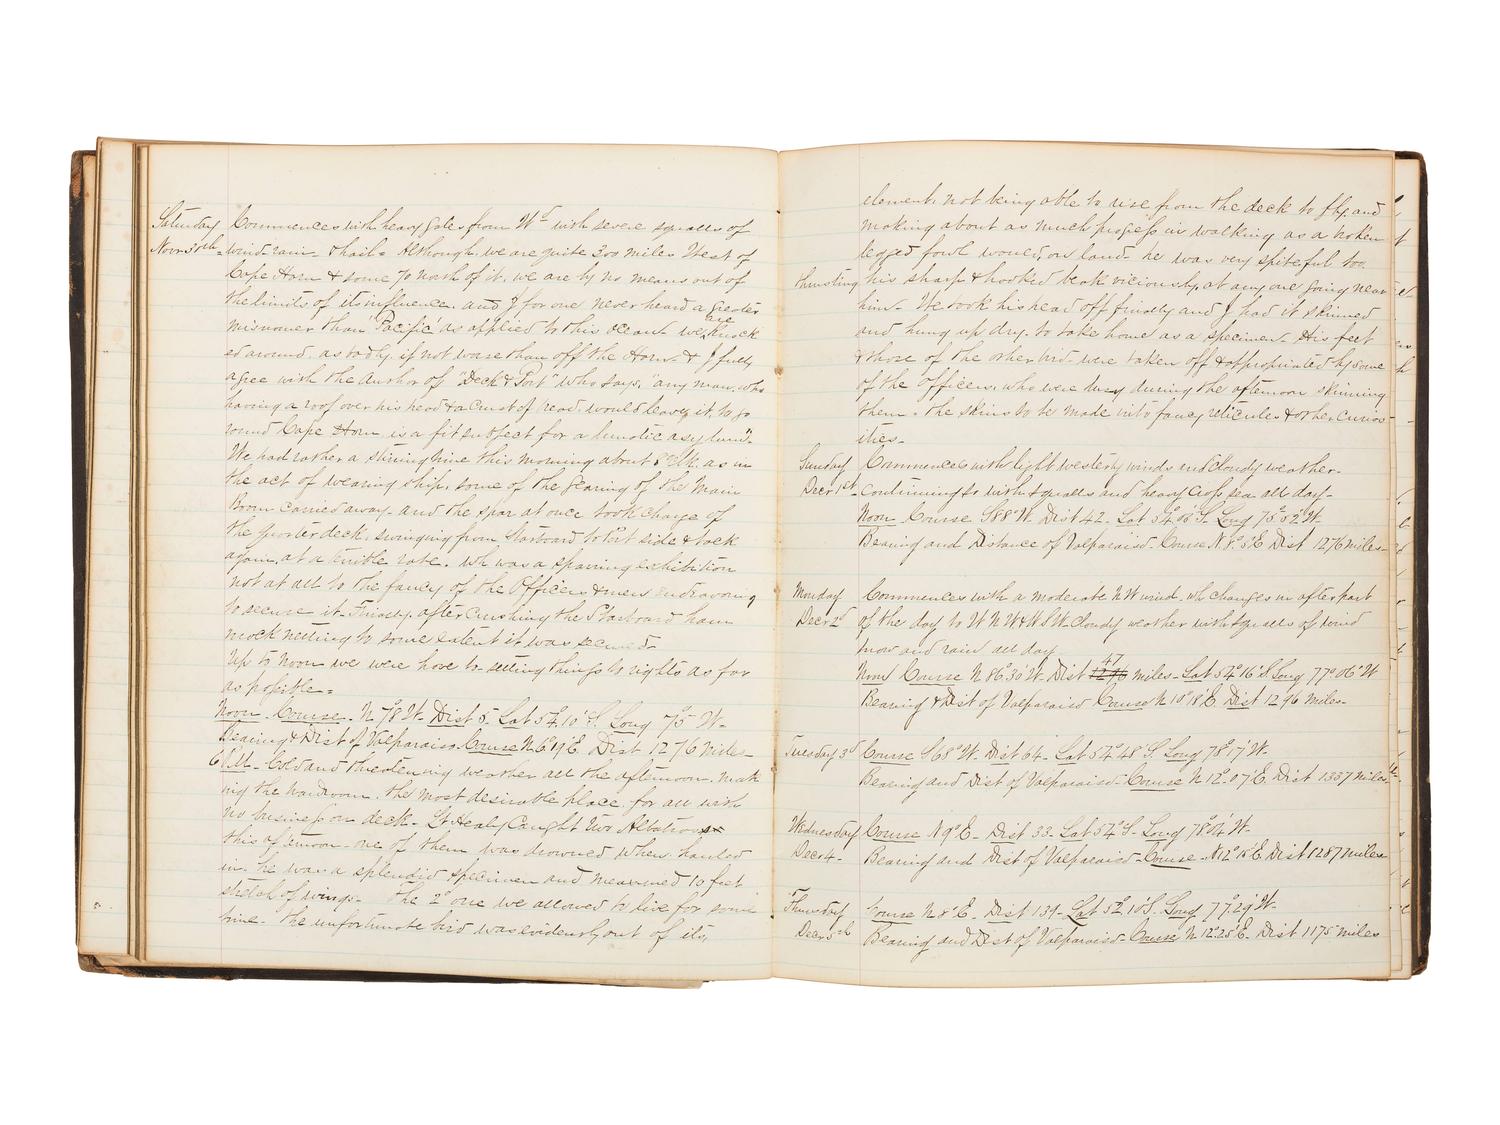 Saturday Commences with heavy gales from Wd with severe squalls of
Novr 30th wind rain & hail - Although, we are quite 300 miles West of
Cape Horn & some 70 north of it, we are by no means out of
the limits of its influence. and I for one never heard a greater
misnomer than 'Pacific' as applied to this ocean. we are knock
ed around, as badly if not worse than off the Horn - & I fully
agree with the Author of "Deck & Port" who says, "any man, who
having a roof over his head & a crust of read, would leave it, to go
round Cape Horn, is a fit subject for a lunatic asylum".
We had rather a stirring time this morning about as in
the act of wearing ship, some of the gearing of the Main
Boom carried away - and the spar at once took charge of
the quarter deck, swinging from Starboard to Port side & back
again, at a terrible rate. wh was a sparring exhibition
not at all to the fancy of the Officers & men endeavoring
to secure it - Finally, after crushing the Starboard ham
mock netting to some extent it was secured -
Up to Noon we were hove to - setting things to rights as far
as possible =
Noon Course. N 78° W - Dist 5 - Lat 54° 10' S. Long 75° W -
Bearing & Dist of Valparaiso Course N 6° 19' E. Dist 1276 miles -
6 P.M. - Cold and threatening weather all the afternoon. mak
ing the wardroom, the most desirable place for all with
no business on deck - Lt Healy Caught two Albatross
this afternoon - one of them was drowned when hauled
in. he was a splendid specimen and measured 10 feet
stretch of wings - The 2d one we allowed to live for some
time - the unfortunate bird was evidently, out of its,
element, not being able to rise from the deck to fly, and
making about as much progress in walking as a broken
legged fowl would, on land - he was very spiteful too
thrusting his sharp & hooked beak viciously, at any one going near
him - We took his head off finally and I had it skinned
and hung up dry. to take home as a specimen - His feet
& those of the other bird - were taken off & appropriated by some
of the Officers, who were busy during the afternoon skinning
them - the skins to be made into fancy reticules & other curios
ities -
Sunday Commences with light westerly winds and cloudy weather -
Decr 1st - Continuing so with squalls and heavy Cross sea all day -
Noon Course S 88° W. Dist 42 - Lat 54° 06' S. Long 75° 52' W -
Bearing and Distance of Valparaiso - Course N 8° 5' E Dist 1276 miles -
Monday Commences with a moderate N W wind - wh changes in after part
Decr 2d of the day to W N W & W S W - Cloudy weather with squalls of wind
snow and rain all day
47
Noon Course N 86° 30' W - Dist 1296 miles - Lat 54° 16' S Long 77° 06' W
Bearing & Dist of Valparaiso Course N 10° 18' E. Dist 1296 Miles -
Tuesday 3d Course S 68° W - Dist 64 - Lat 54° 48' S. Long 78° 17' W -
Bearing and Dist of Valparaiso - Course N 12° 07' E. Dist 1337 Miles
Wednesday Course N 9° E - Dist 33 - Lat 54° S - Long 78° 04' W -
Decr 4 - Bearing and Dist of Valparaiso - Course - N 12° 15' E. Dist 1287 miles
Thursday Course N 8° E. - Dist 139 - Lat 52° 10 S. Long 77° 29' W -
Decr 5th Bearing and Dist of Valparaiso - Course N 12° 25' E - Dist 1175 Miles